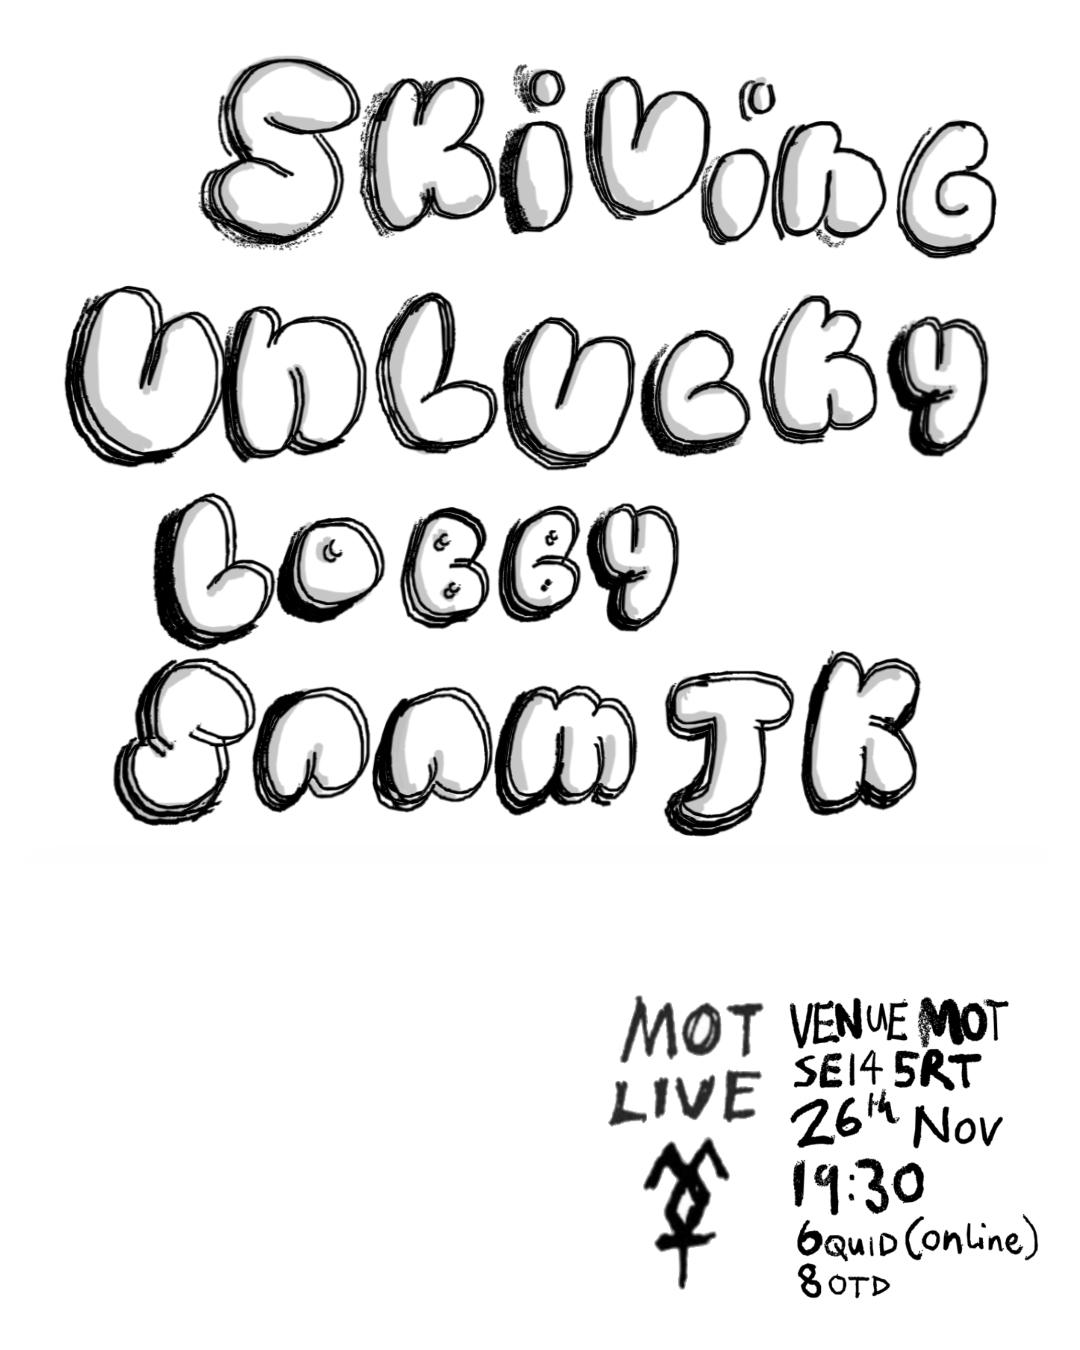 SKiViNG
UNLUCKY
LOBBY
SAAM JK
MOT
LIVE
VENUE MOT
SE14 5RT
26th Nov
19:30
6 QUID (online)
8 OTD